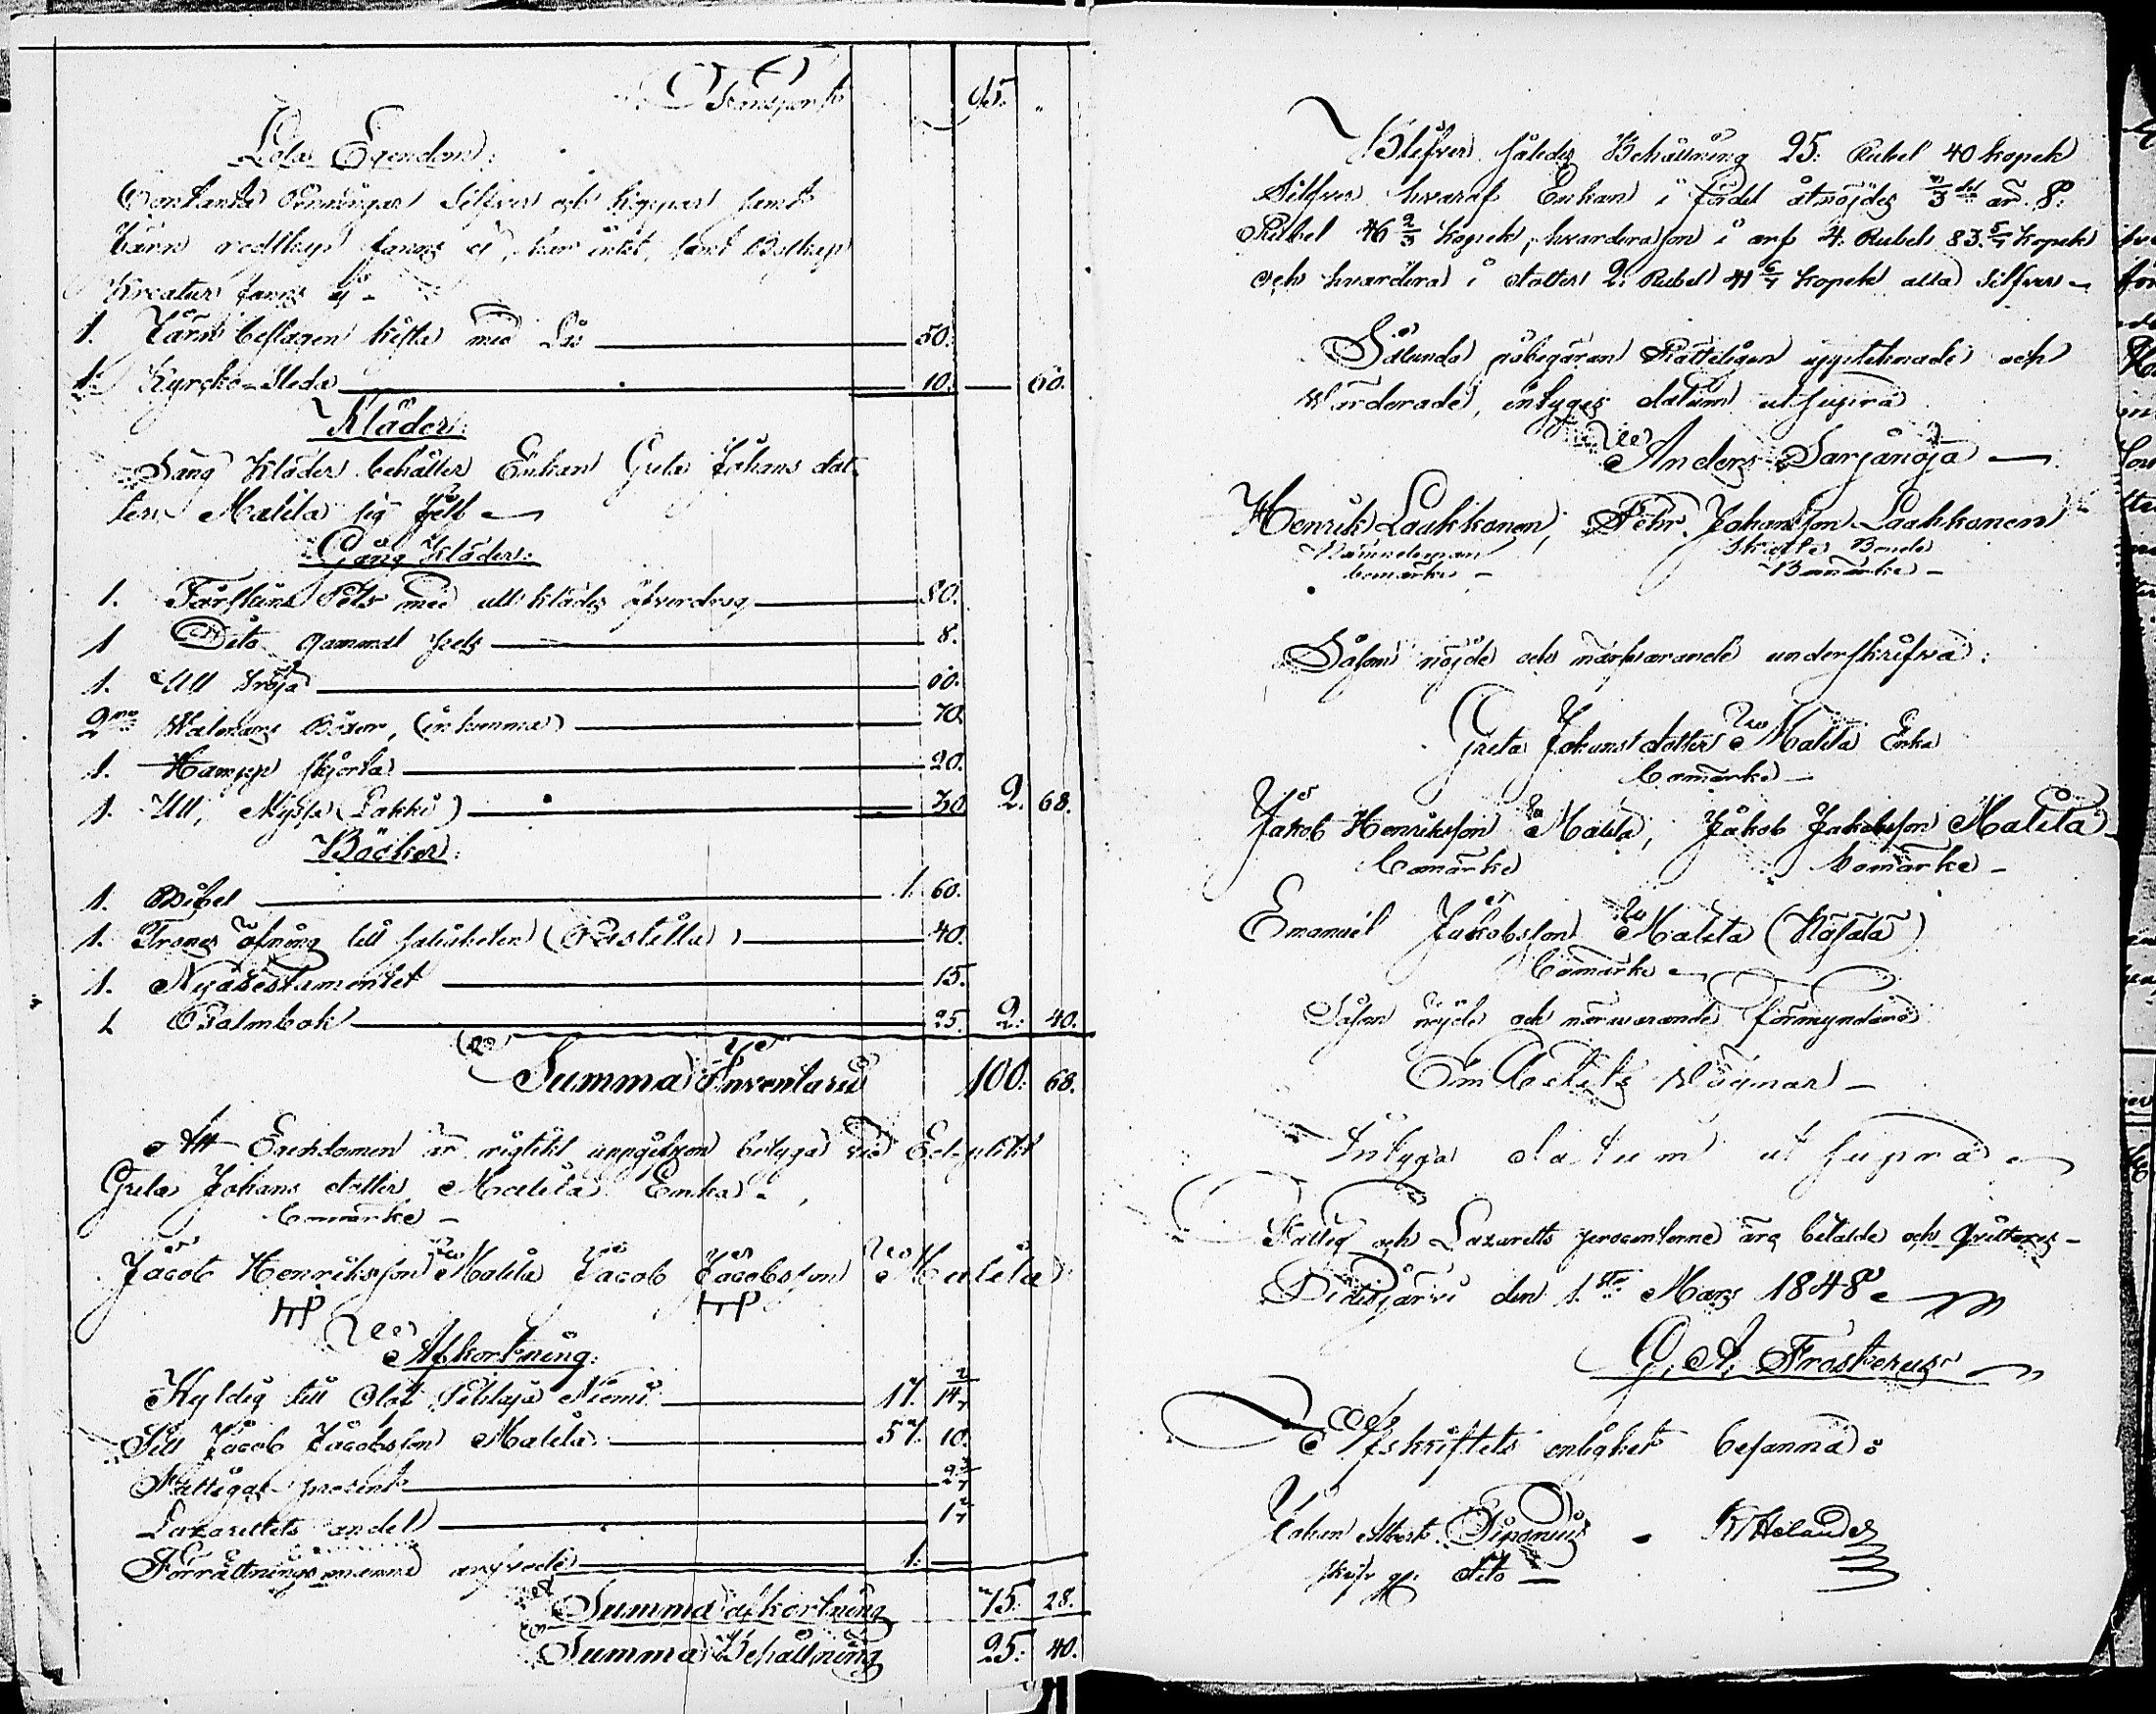 Transport 95. "
Lösa Egendom:
Contanta Penningar Silfver och koppar samt
Järn redskap fanns ej, har intet, samt Boskap
Kreatur fanns ej –
1. Järn beslagen kista med Lås 50.
1. Kyrcko-Släda 10. 60.
Kläder:
Säng Kläder behåller Enkan Greta Johans dot-
ter Matila sig sjelf
Gång Kläder:
1. Fårskins Pels med ull klädes öfverdrag 80.
1 Dito gammal pels 8.
1. Ull tröja 60.
2ne Walmars Böxor, 70.
1. Hamp skjorta 20.
1. Ull, Myssa (Lakki) 30. 2. 68.
Böcker:
1. Bibel 1. 60.
1. Trones öfning till saligheten (Postilla) 40.
1. Nyatestamentet 15.
1 Psalmbok 25. 2: 40.
Summa Inventarii 100: 68.
Att Egendomen är rigtikt uppgifven betyga vid Ed-plikt
Greta Johans dotter Matila Enka.
bomärke –
Jacob Henriksson Matila Jacob Jacobsson Matila
Afkortning:
Skyldig till Olof Niemi 17. 14 2/7
Till Jacob Jacobsson Matila 57. 10.
Fattigas procent 2 3/7
Lazarettets andel 1 2/7
Förrättningsmännens arfvode 1. –
Summa afkortning 75: 28.
Summa Behållning 25: 40.
Blifver således Behållning 25: Rubel 40 kopek
Silfver hvaraf Enkan i fördel åtnöjdes 1/3 del är 8:
Rubel 46 2/3 kopek, hvardera son i arf 4. Rubel 83 5/7 kopek
och hvardera dotter 2: Rubel 41 6/7 kopek allt Silfver –
Sålunda påbegäran Rätteligen upptecknade och
Värderade, intyges datum utsupra
Anders Sarjanoja –
Henrik Laakkonen, Pehr Johansson Laakkonen
Nämndeman Skatte Bonde
bomärke – Bomärke –
Såsom nöjde och närvarande underskrifva:
Greta Johans dotter Matila Enka
bomärke –
Jakob Henriksson Matila, Jakob Jakobsson Matila
bomärke bomärke –
Emanuel Jakobsson Matila
bomärke
Såsom nöjde och närwarande förmyndare
Intyga datum ut supra
Fattig och Lazaretts procenterne äro betalde och quitteras –
Pidisjärvi den 1sta Mars 1848
G. A. Frosterus
Afskriftets enlighet besanna:
Johan Albert Siponius KHeland
dito